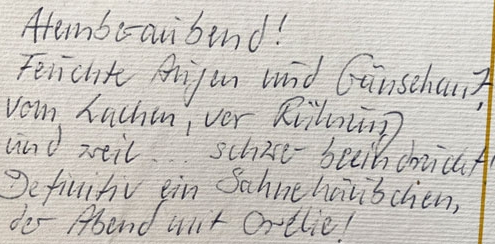 Atemberaubend!
Feuchte Augen und Gänsehaut
vom Lachen, vor Rührung
und weil ... schwer beeindruckt!
Definitiv ein Sahnehäubchen,
der Abend mit